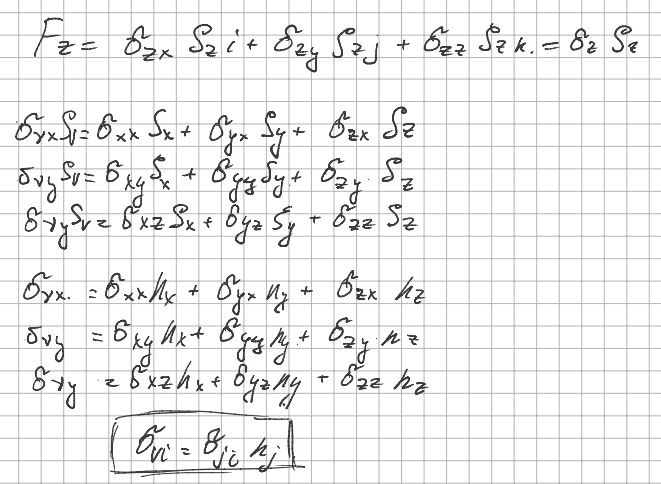 F_z = σ_zx S_z i + σ_zy S_z j + σ_zz S_z k. = σ_z S_z
σ_νx S_ν = σ_xx S_x + σ_yx S_y + σ_zx S_z
σ_νy S_ν = σ_xy S_x + σ_yy S_y + σ_zy S_z
σ_νy S_ν = σ_xz S_x + σ_yz S_y + σ_zz S_z
σ_νx. = σ_xx n_x + σ_yx n_y + σ_zx n_z
σ_νy = σ_xy n_x + σ_yy n_y + σ_zy n_z
σ_νy = σ_xz n_x + σ_yz n_y + σ_zz n_z
σ_νi = σ_ji n_j